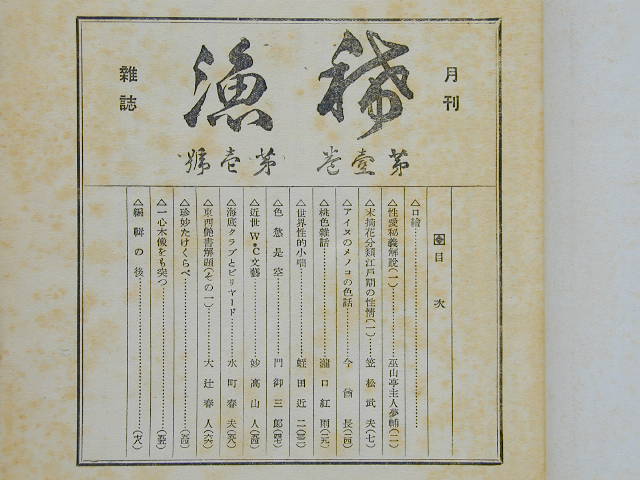 月刊
稀漁
雑誌
第壹卷 第壱號
目次
△口繪
△性愛秘義解說(一) 巫山亭主人夢輔(二)
△末摘花分類江戶期の性情(一) 笠松武夫(七)
△アイヌのメノコの色話 今酋長
△桃色雜話 瀧口紅雨
△世界性的小咄 蛭田近二
△色慾是空 門御三郎
△近世W・C文藝 妙高山人
△海底クラブとビリヤード 水町春夫
△東西艶書解題(その一) 大辻春人
△珍妙たけくらべ
△一心木像をも突つ
△編輯の後